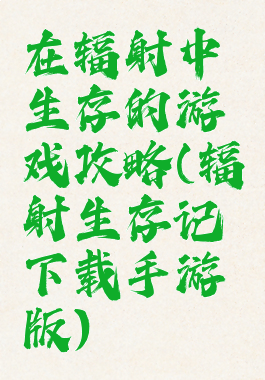 在辐射中
生存的游
戏攻略(辐
射生存记
下载手游
版)